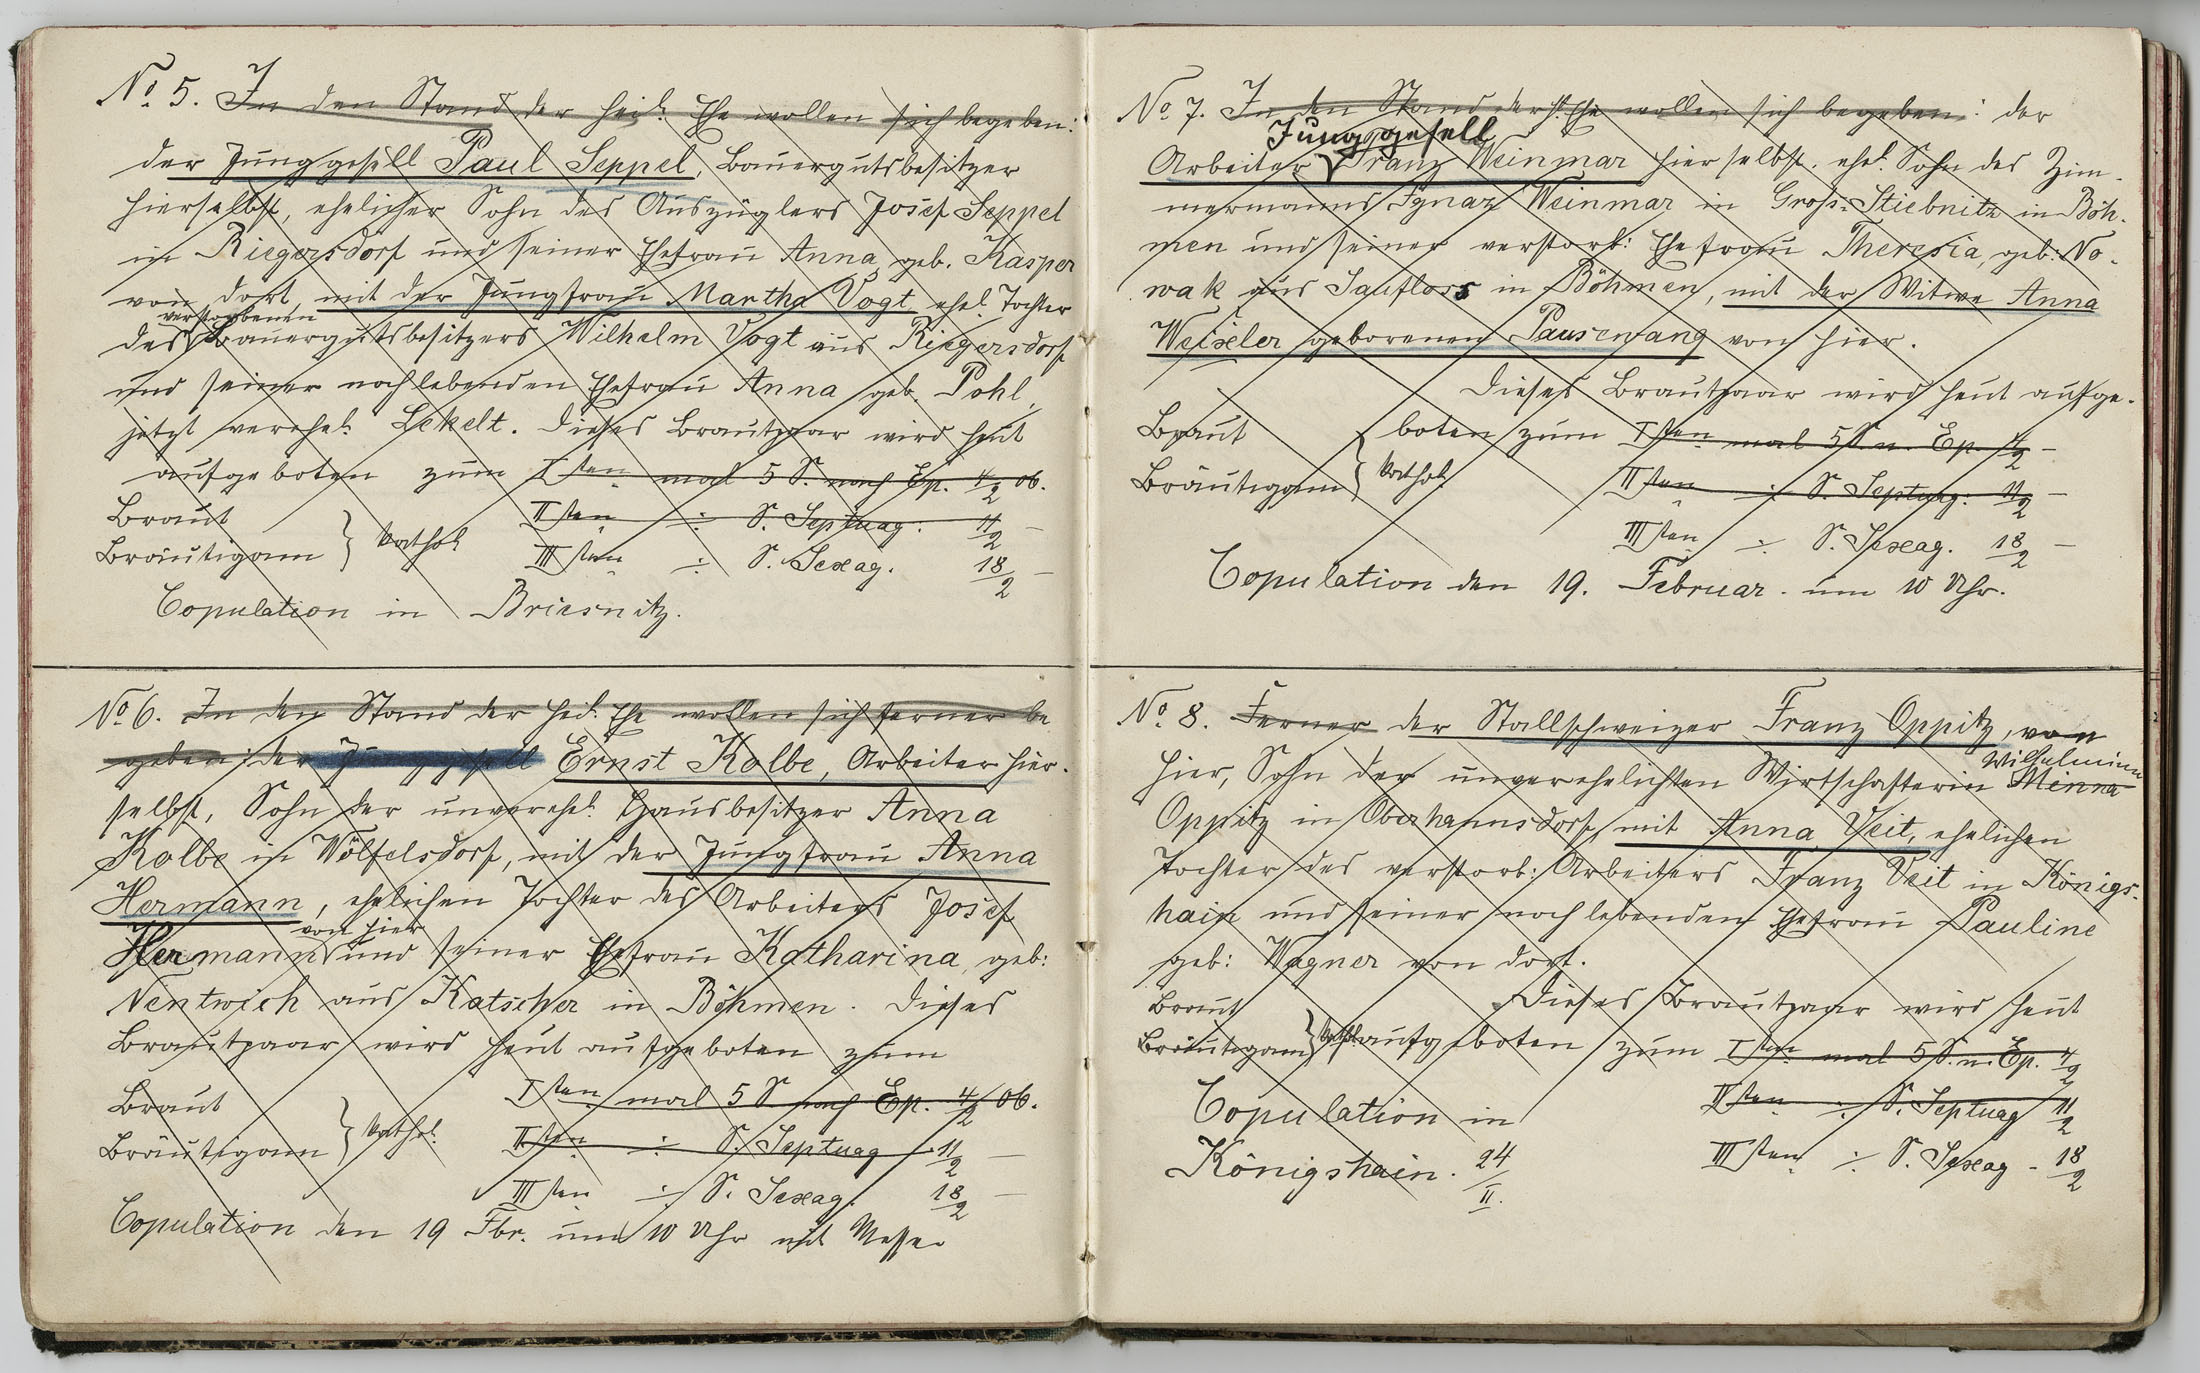 No. 5. In den Stand der heil. Ehe wollen sich begeben:
der Junggesell Paul Seppel, Bauergutsbesitzer
hierselbst, ehelicher Sohn des Auszüglers Josef Seppel
in Riegersdorf und seiner Ehefrau Anna geb. Kasper
von dort, mit der Jungfrau Martha Vogt ehel. Tochter
verstorbenen
des Bauergutsbesitzers Wilhelm Vogt aus Riegersdorf
und seiner noch lebenden Ehefrau Anna geb. Pohl,
jetzt verehel. Lekelt. Dieses Brautpaar wird heut
aufgeboten zum Isten mal 5 S. nach Ep. 4/2 06.
Braut IIten ÷ S. Septuag. 11/2 –
Bräutigam } kathol. IIIten ÷ S. Sexag. 18/2 –
Copulation in Briesnitz.
No 6. In den Stand der heil. Ehe wollen sich ferner be
geben: der Junggesell Ernst Kolbe, Arbeiter hier-
selbst, Sohn der unverehel. Hausbesitzer Anna
Kolbe in Wölfelsdorf, mit der Jungfrau Anna
Hermann, ehelichen Tochter des Arbeiters Josef
von hier
Hermann und seiner Ehefrau Katharina, geb:
Nentwich aus Katscher in Böhmen. Dieses
Brautpaar wird heut aufgeboten zum
Braut Isten mal 5 S. nach Ep. 4/2 06.
Bräutigam } kathol. IIten ÷ S. Septuag 11/2 –
IIIten ÷ S. Sexag. 18/2 –
Copulation den 19 Fbr. um 10 Uhr mit Messe
No 7. In den Stand der h. Ehe wollen sich begeben: der
Junggesell
Arbeiter Franz Weinmar hierselbst. ehel. Sohn des Zim-
mermanns Ignaz Weinmar in Groß-Stiebnitz in Böh-
men und seiner verstorb: Ehefrau Theresia, geb: No-
wak aus Saufloss in Böhmen, mit der Witwe Anna
Weixeler geborenen Pausewang von hier.
Dieses Brautpaar wird heut aufge-
Braut boten zum Isten mal 5 S. n. Ep. 4/2 –
Bräutigam } kathol. IIten ÷ S. Septuag: 11/2 –
IIIten ÷ S. Sexag. 18/2 –
Copulation den 19. Februar. um 10 Uhr.
No. 8. Ferner der Stallschweizer Franz Oppitz, von
Wilhelmine
hier, Sohn der unverehelichten Wirtschafterin Minna
Oppitz in Oberhannsdorf, mit Anna Veit, ehelichen
Tochter des verstorb: Arbeiters Franz Veit in Königs-
hain und seiner noch lebenden Ehefrau Pauline
geb: Wagner von dort.
Braut Dieses Brautpaar wird heut
Bräutigam } kathol. aufgeboten zum Isten mal 5 S. n. Ep. 4/2
Copulation in IIten ÷ S. Septuag 11/2
Königshain. 24/II. IIIten ÷ S. Sexag – 18/2